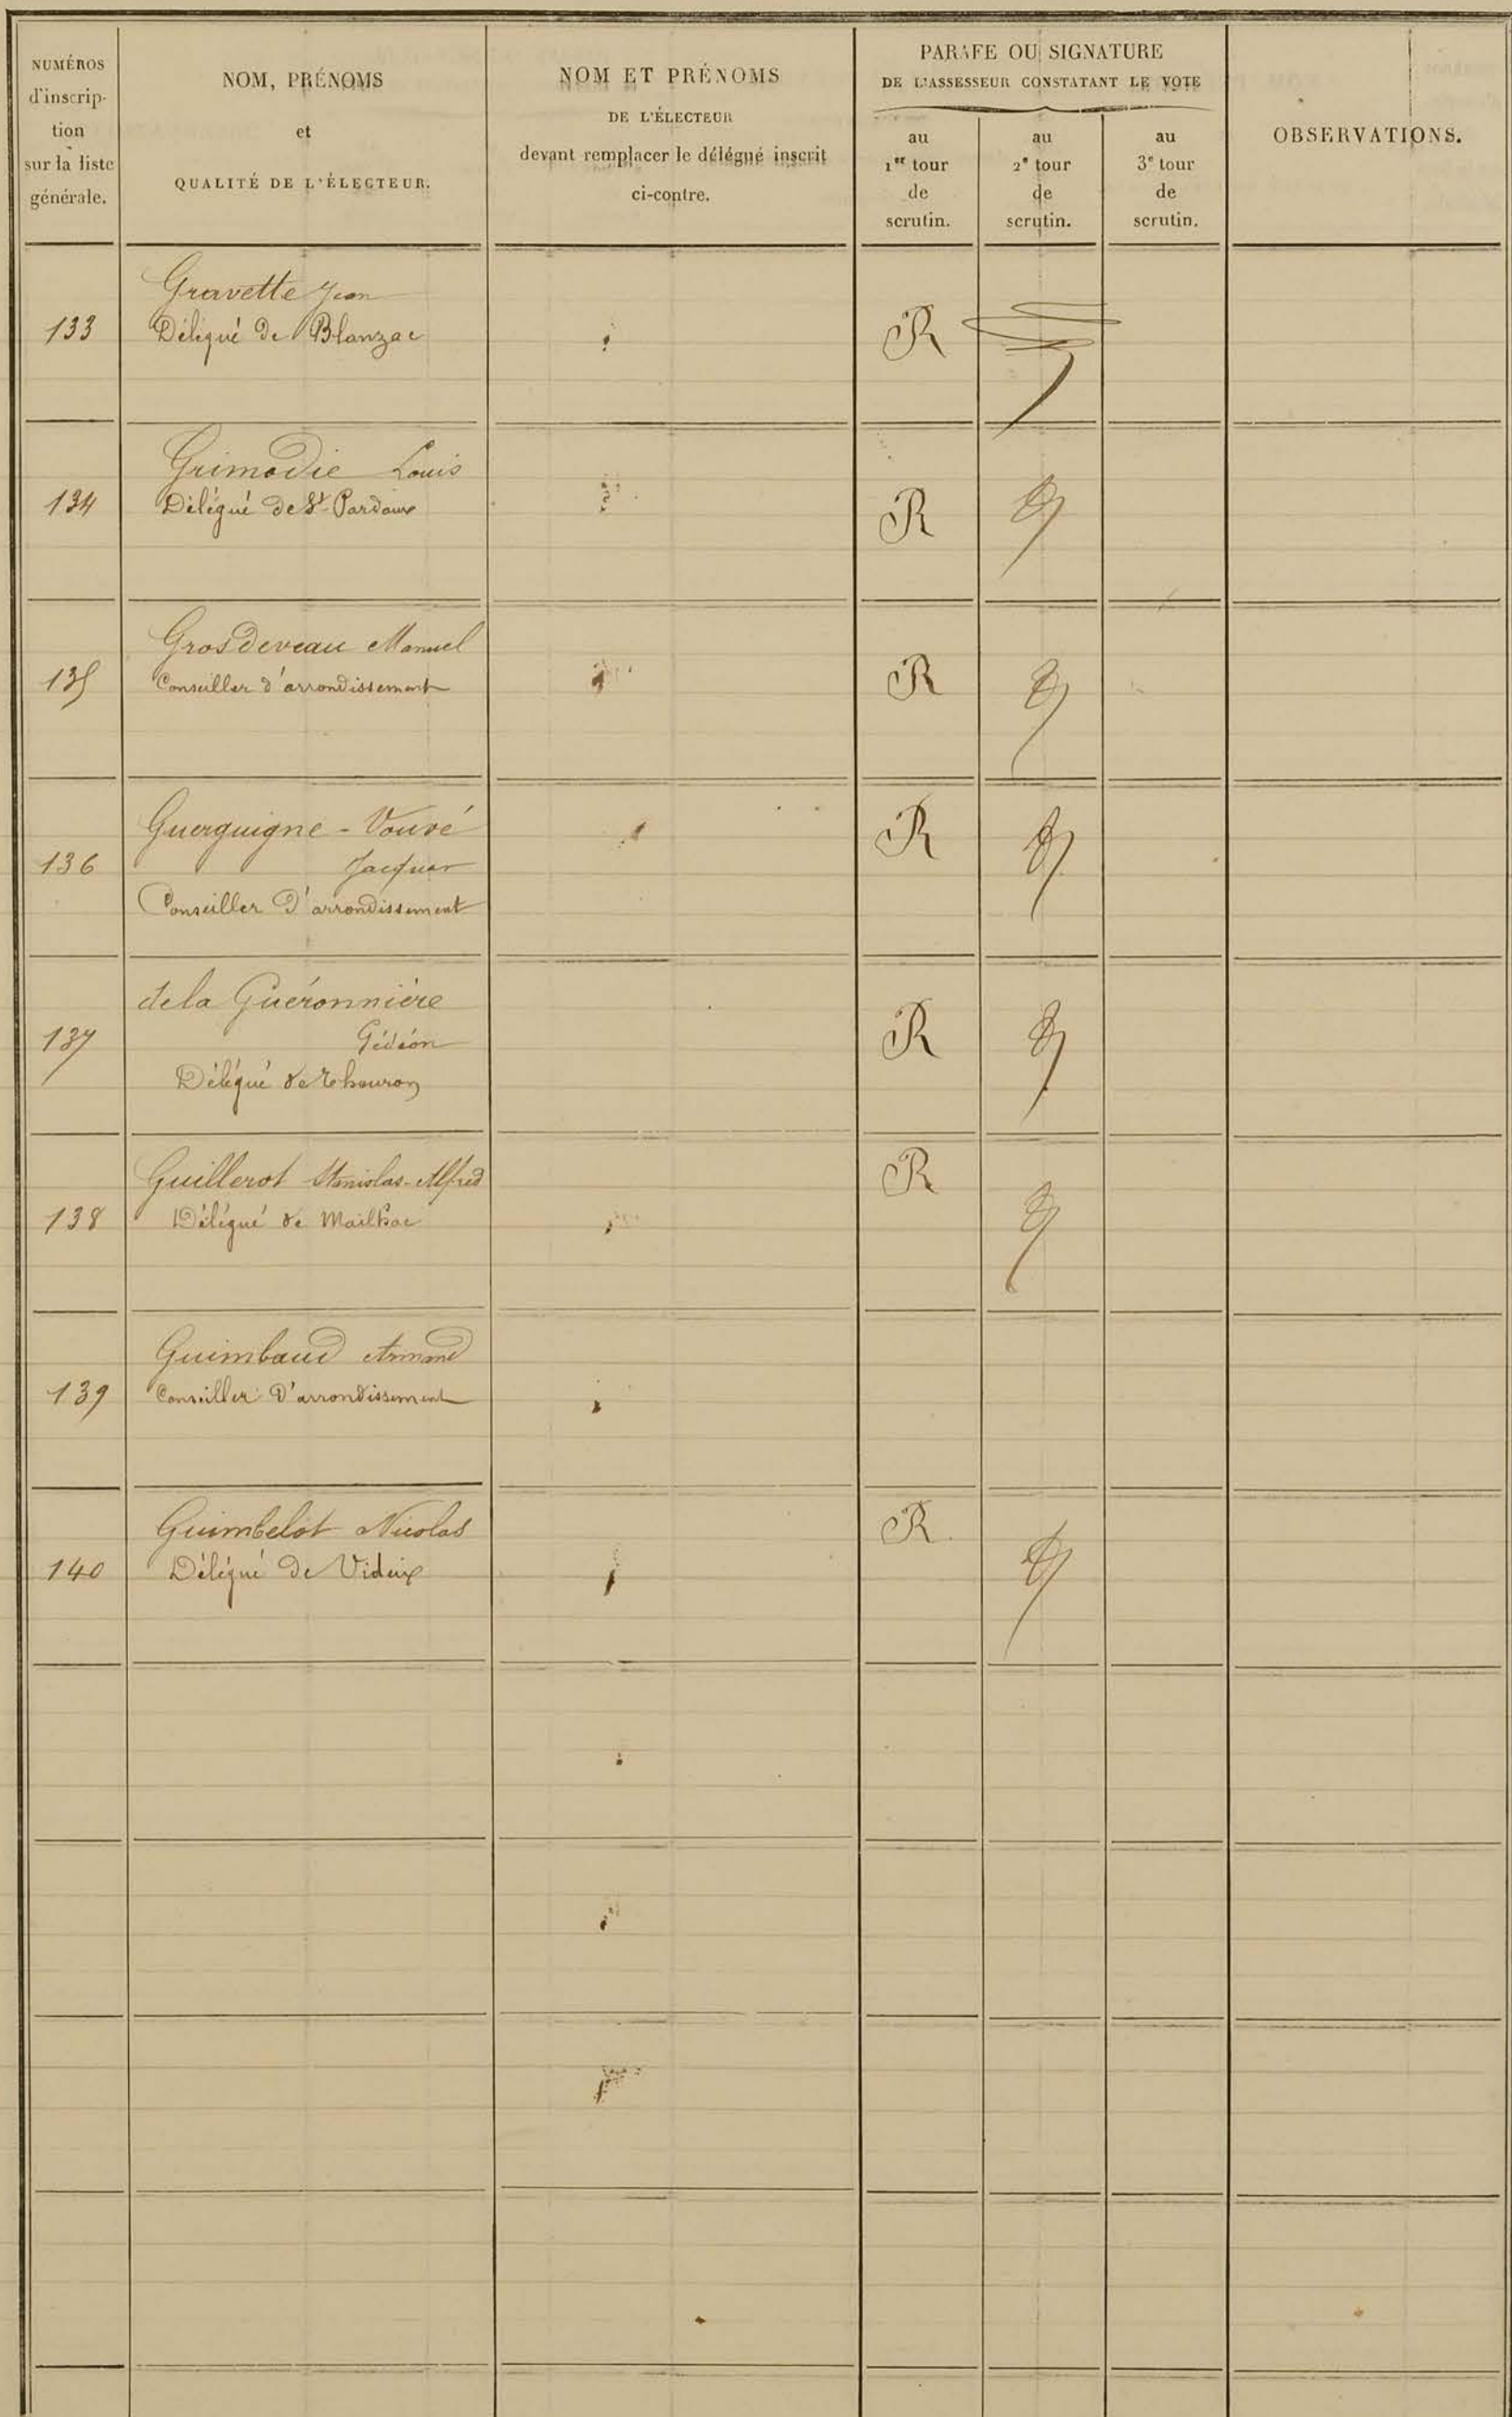 NUMÉROS
d'inscrip-
tion
sur la liste
générale.
NOM, PRÉNOMS
et
QUALITÉ DE L'ÉLECTEUR.
NOM ET PRÉNOMS
DE L'ÉLECTEUR
devant remplacer le délégué inscrit
ci-contre.
PARAFE OU SIGNATURE
DE L'ASSESSEUR CONSTATANT LE VOTE
au
1er tour
de
scrutin.
au
2e tour
de
scrutin.
au
3e tour
de
scrutin.
OBSERVATIONS.
Gravette Jean
133 Délégué de Blanzac R
Grimodie Louis
134 Délégué de St Pardoux R
Grosdeveau Manuel
135 Conseiller d'arrondissement R
Guerguigne - Vouvé R
136 Jacques
Conseiller d'arrondissement
de la Guéronnière
137 Gédéon R
Délégué de Thouron
Guillerot Stanislas-Alfred R
138 Délégué de Mailhac
Guimbaud Armand
139 Conseiller d'arrondissement
Guimbelot Nicolas R
140 Délégué de Videix